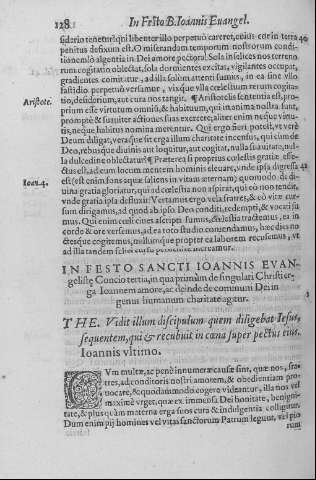 128. In Festo B. Ioannis Euangel.
sidario teneturs qui libenter illo perpetuò careret, eius cor in terra
penitus defixum est. O miserandam temporum nostrorum condi
tionem
in Dei amore pectora! Sola infelices nos terreno
rum cogitatio oblectat, sola dormientes excitat, vigilantes occupat,
gradientes comitatur, ad illa solùm attenti sumus, in ea sine vllo
fastidio perpetuò versamur, vixque vlla cœlestium rerum cogita
tio, desiderium, aut cura nos tangit. ¶ Aristotelis sententia est, pro-
Aristote.
prium esse virtutum omniũ, & habituum, qui in anima nostra sunt,
promptè & suauiter actiones suas exercere, aliter enim neque virtu-
tis, neque habitus nomina merentur. Qui ergo fieri potest, vt verè
Deum diligat, versaque sit erga illum charitate incensus, qui cùm de
Deo, rebusque diuinis aut loquitur, aut cogitat, nulla suauitate, nul-
la dulcedine oblectatur? ¶ Præterea si proprius cœlestis gratiæ effe-
ctus est, ad eum locum mentem hominis eleuare, vnde ipsa digressa
Ioan. 4.
est (est enim fons aquæ salientis in vitam æternam) quomodo is di-
uina gratia gloriatur, qui ad cœlestia non aspirat, qui eò non tendit,
vnde gratia ipsa defluxit? Vertamus ergo vela fratres, & eò vitæ cur-
sum dirigamus, ad quod ab ipso Deo conditi, redempti, & vocati su
mus. Qui enim cœli ciues ascripti sumus, cœlestia tractemus, ea in
corde & ore versemus, ad ea toto studio contendamus, hæc dies no-
ctesque cogitemus, nullumque propter ea laborem recusemus, vt
ad illa tandem
IN FESTO SANCTI IOANNIS EVAN-
gelistę Concio tertia, in qua primùm de singulari Christi er-
ga Ioannem amore, ac deinde de communi Dei in
genus humanum charitate agitur.
THE. Vidit illum discipulum quem diligebat Iesus,
sequentem, qui & recubuit in cœna super pectus eius.
Ioannis vltimo.
CVm multæ, ac penè innumeræ causæ sint, quæ nos, fra-
tres, ad conditoris nostri amorem, & obedientiam pro
uocare, & quodammodo cogere videantur, illa nos vel
maximè vrget, quæ ex immensa Dei bonitate, benigni-
tate, & plus quàm materna erga suos cura & indulgentia colligitur.
Dum enim pij homines vel vitas sanctorum Patrum legunt, vel pio
rum